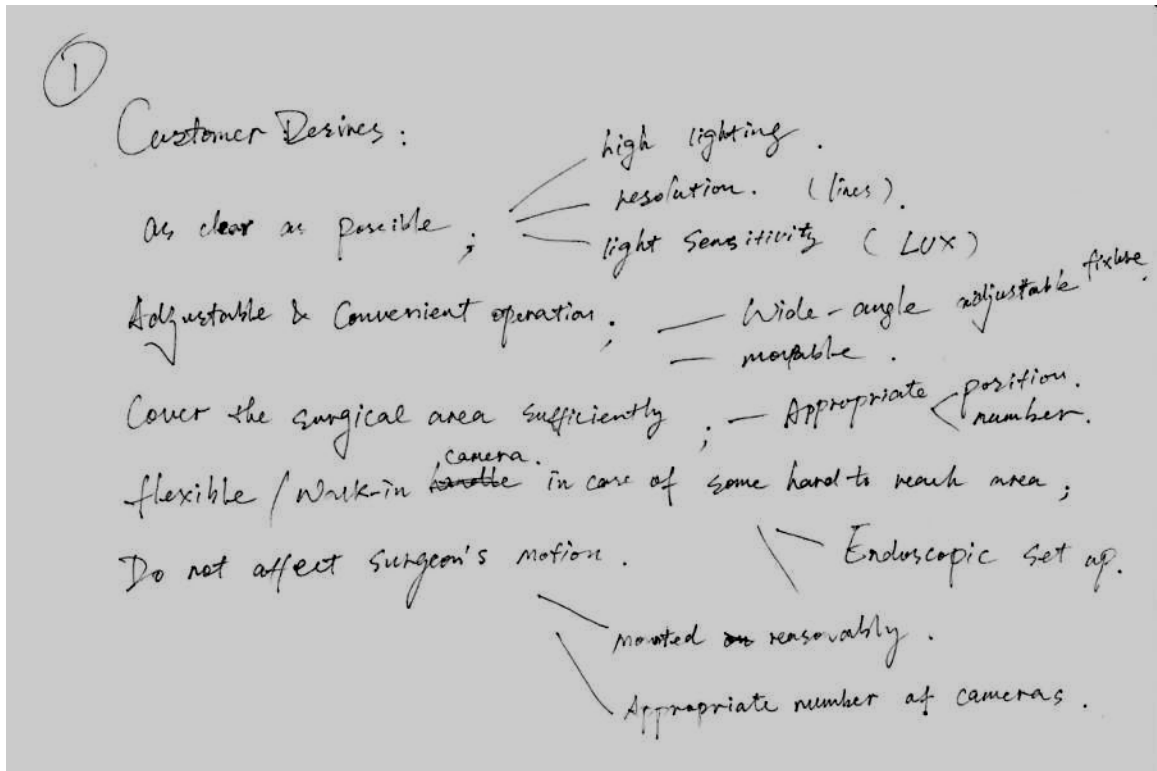 ①
Customer Desires :
high lighting .
resolution . (lines) .
as clear as possible ;
light sensitivity ( LUX )
Adjustable & Convenient operation ;
Wide-angle adjustable fixture .
movable .
Cover the surgical area sufficiently ; — Appropriate
position .
number .
camera .
flexible / Walk-in handle in case of some hard to reach area ;
Do not affect surgeon's motion .
Endoscopic set up .
mounted on reasonably .
Appropriate number of cameras .